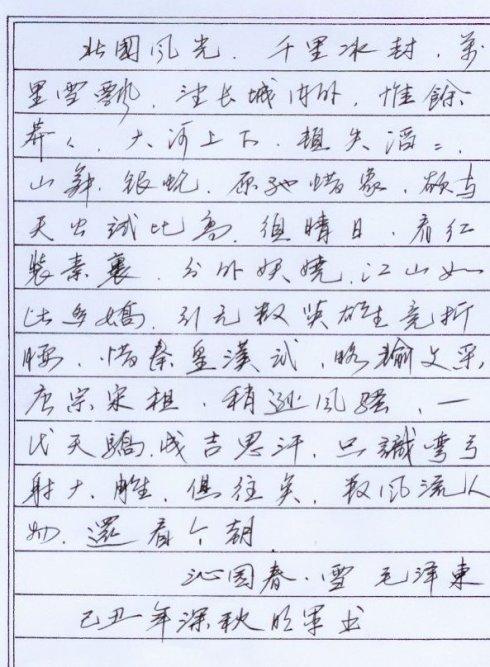 北國风光．千里冰封．萬
里雪飘．望长城内外．惟餘
莽〻．大河上下．頓失滔〻．
山舞．银蛇．原驰蜡象．欲与
天公試比高．須晴日．看红
装素裹．分外妖嬈．江山如
此多嬌．引无数英雄竞折
腰．惜秦皇漢武．略输文采，
唐宗宋祖．稍逊风骚．一
代天驕．成吉思汗．只識彎弓
射大．雕．俱往矣．数风流人
物．還看今朝
沁园春·雪 毛泽東
己丑年深秋 书